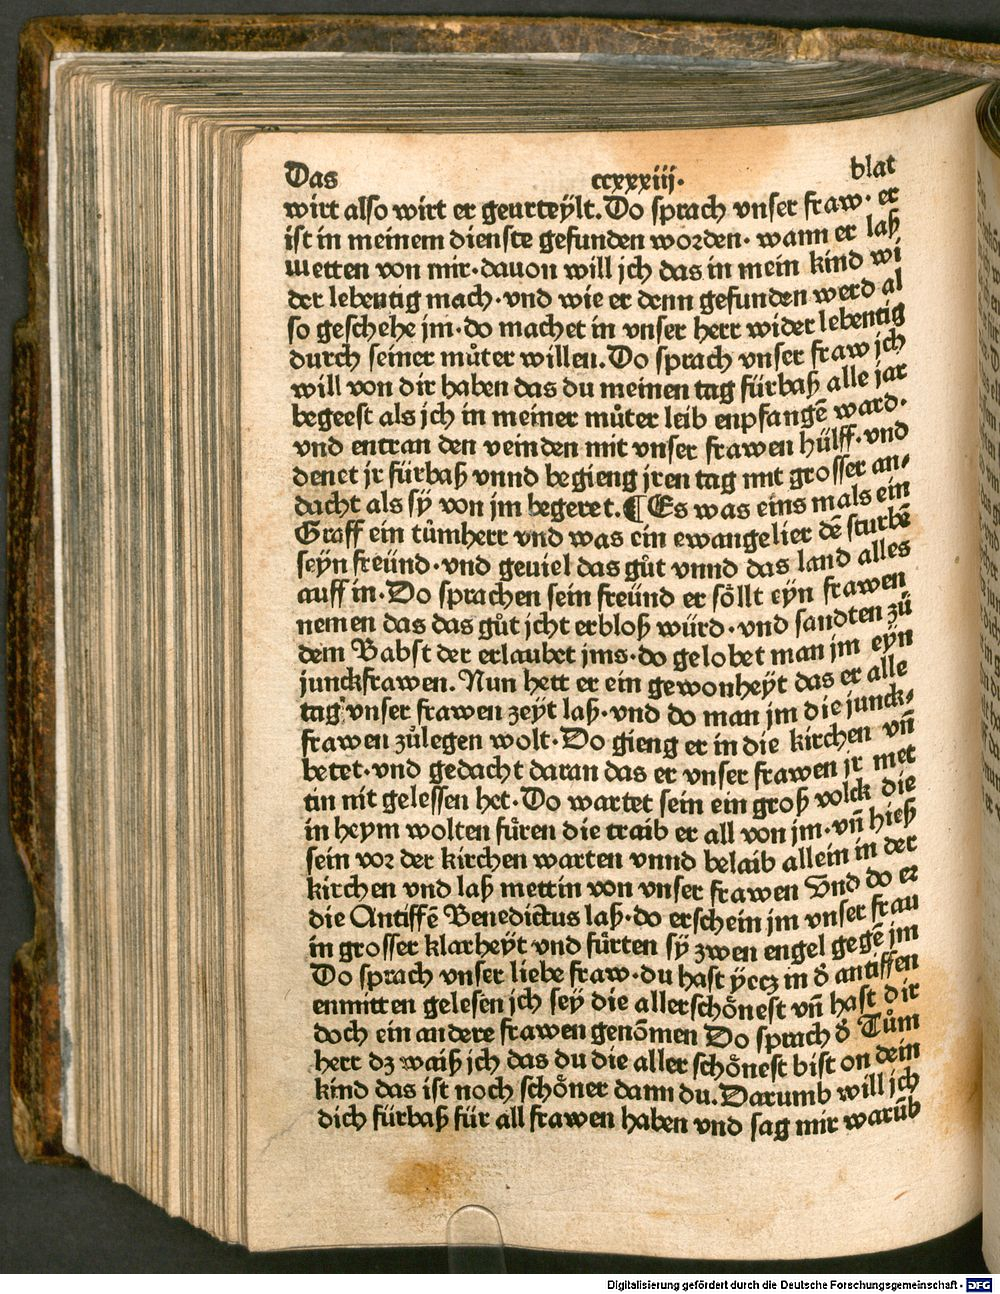 Das ccxxxiij. blat
wirt also wirt er geurteÿlt. Do sprach vnser fraw· er
ist in meinem dienste gefunden worden· wann er laß
metten von mir· dauon will jch das in mein kind wi
der lebentig mach· vnd wie er denn gefunden werd al
so geschehe jm· do machet in vnser herr wider lebentig
durch seiner můter willen. Do sprach vnser fraw jch
will von dir haben das du meinen tag fürbaß alle jar
begeest als jch in meiner můter leib enpfangē ward·
vnd entran den veinden mit vnser frawen hülff· vnd
denet jr fürbaß vnnd begieng jren tag mit grosser an⸗
dacht als sÿ von jm begeret. ¶ Es was eins mals ein
Graff ein tůmherr vnd was ein ewangelier dē sturbē
seyn freünd· vnd geuiel das gůt vnnd das land alles
auff in· Do sprachen sein freünd er soͤllt eyn frawen
nemen das das gůt jcht erbloß würd· vnd sandten zů
dem Babst der erlaubet jms· do gelobet man jm eÿn
junckfrawen. Nun hett er ein gewonheÿt das er alle
tag vnser frawen zeÿt laß· vnd do man jm die junck⸗
frawen zůlegen wolt· Do gieng er in die kirchen vn̄
betet· vnd gedacht daran das er vnser frawen jr met
tin nit gelessen het· Do wartet sein ein groß volck die
in heym wolten fuͤren die traib er all von jm· vn̄ hieß
sein vor der kirchen warten vnnd belaib allein in der
kirchen vnd laß mettin von vnser frawen Vnd do er
die Antiffē Benedictus laß· do erschein jm vnser frau
in grosser klarheÿt vnd fuͤrten sÿ zwen engel gegē jm
Do sprach vnser liebe fraw· du hast ÿccz in d̕ antiffen
enmitten gelesen jch sey die allerschoͤnest vn̄ hast dir
doch ein andere frawen genōmen Do sprach d̕ Tům
herr dz waiß jch das du die aller schoͤnest bist on dein
kind das ist noch schoͤner dann du. Darumb will jch
dich fürbaß für all frawen haben vnd sag mir warūb
Digitalisierung gefördert durch die Deutsche Forschungsgemeinschaft - DFG